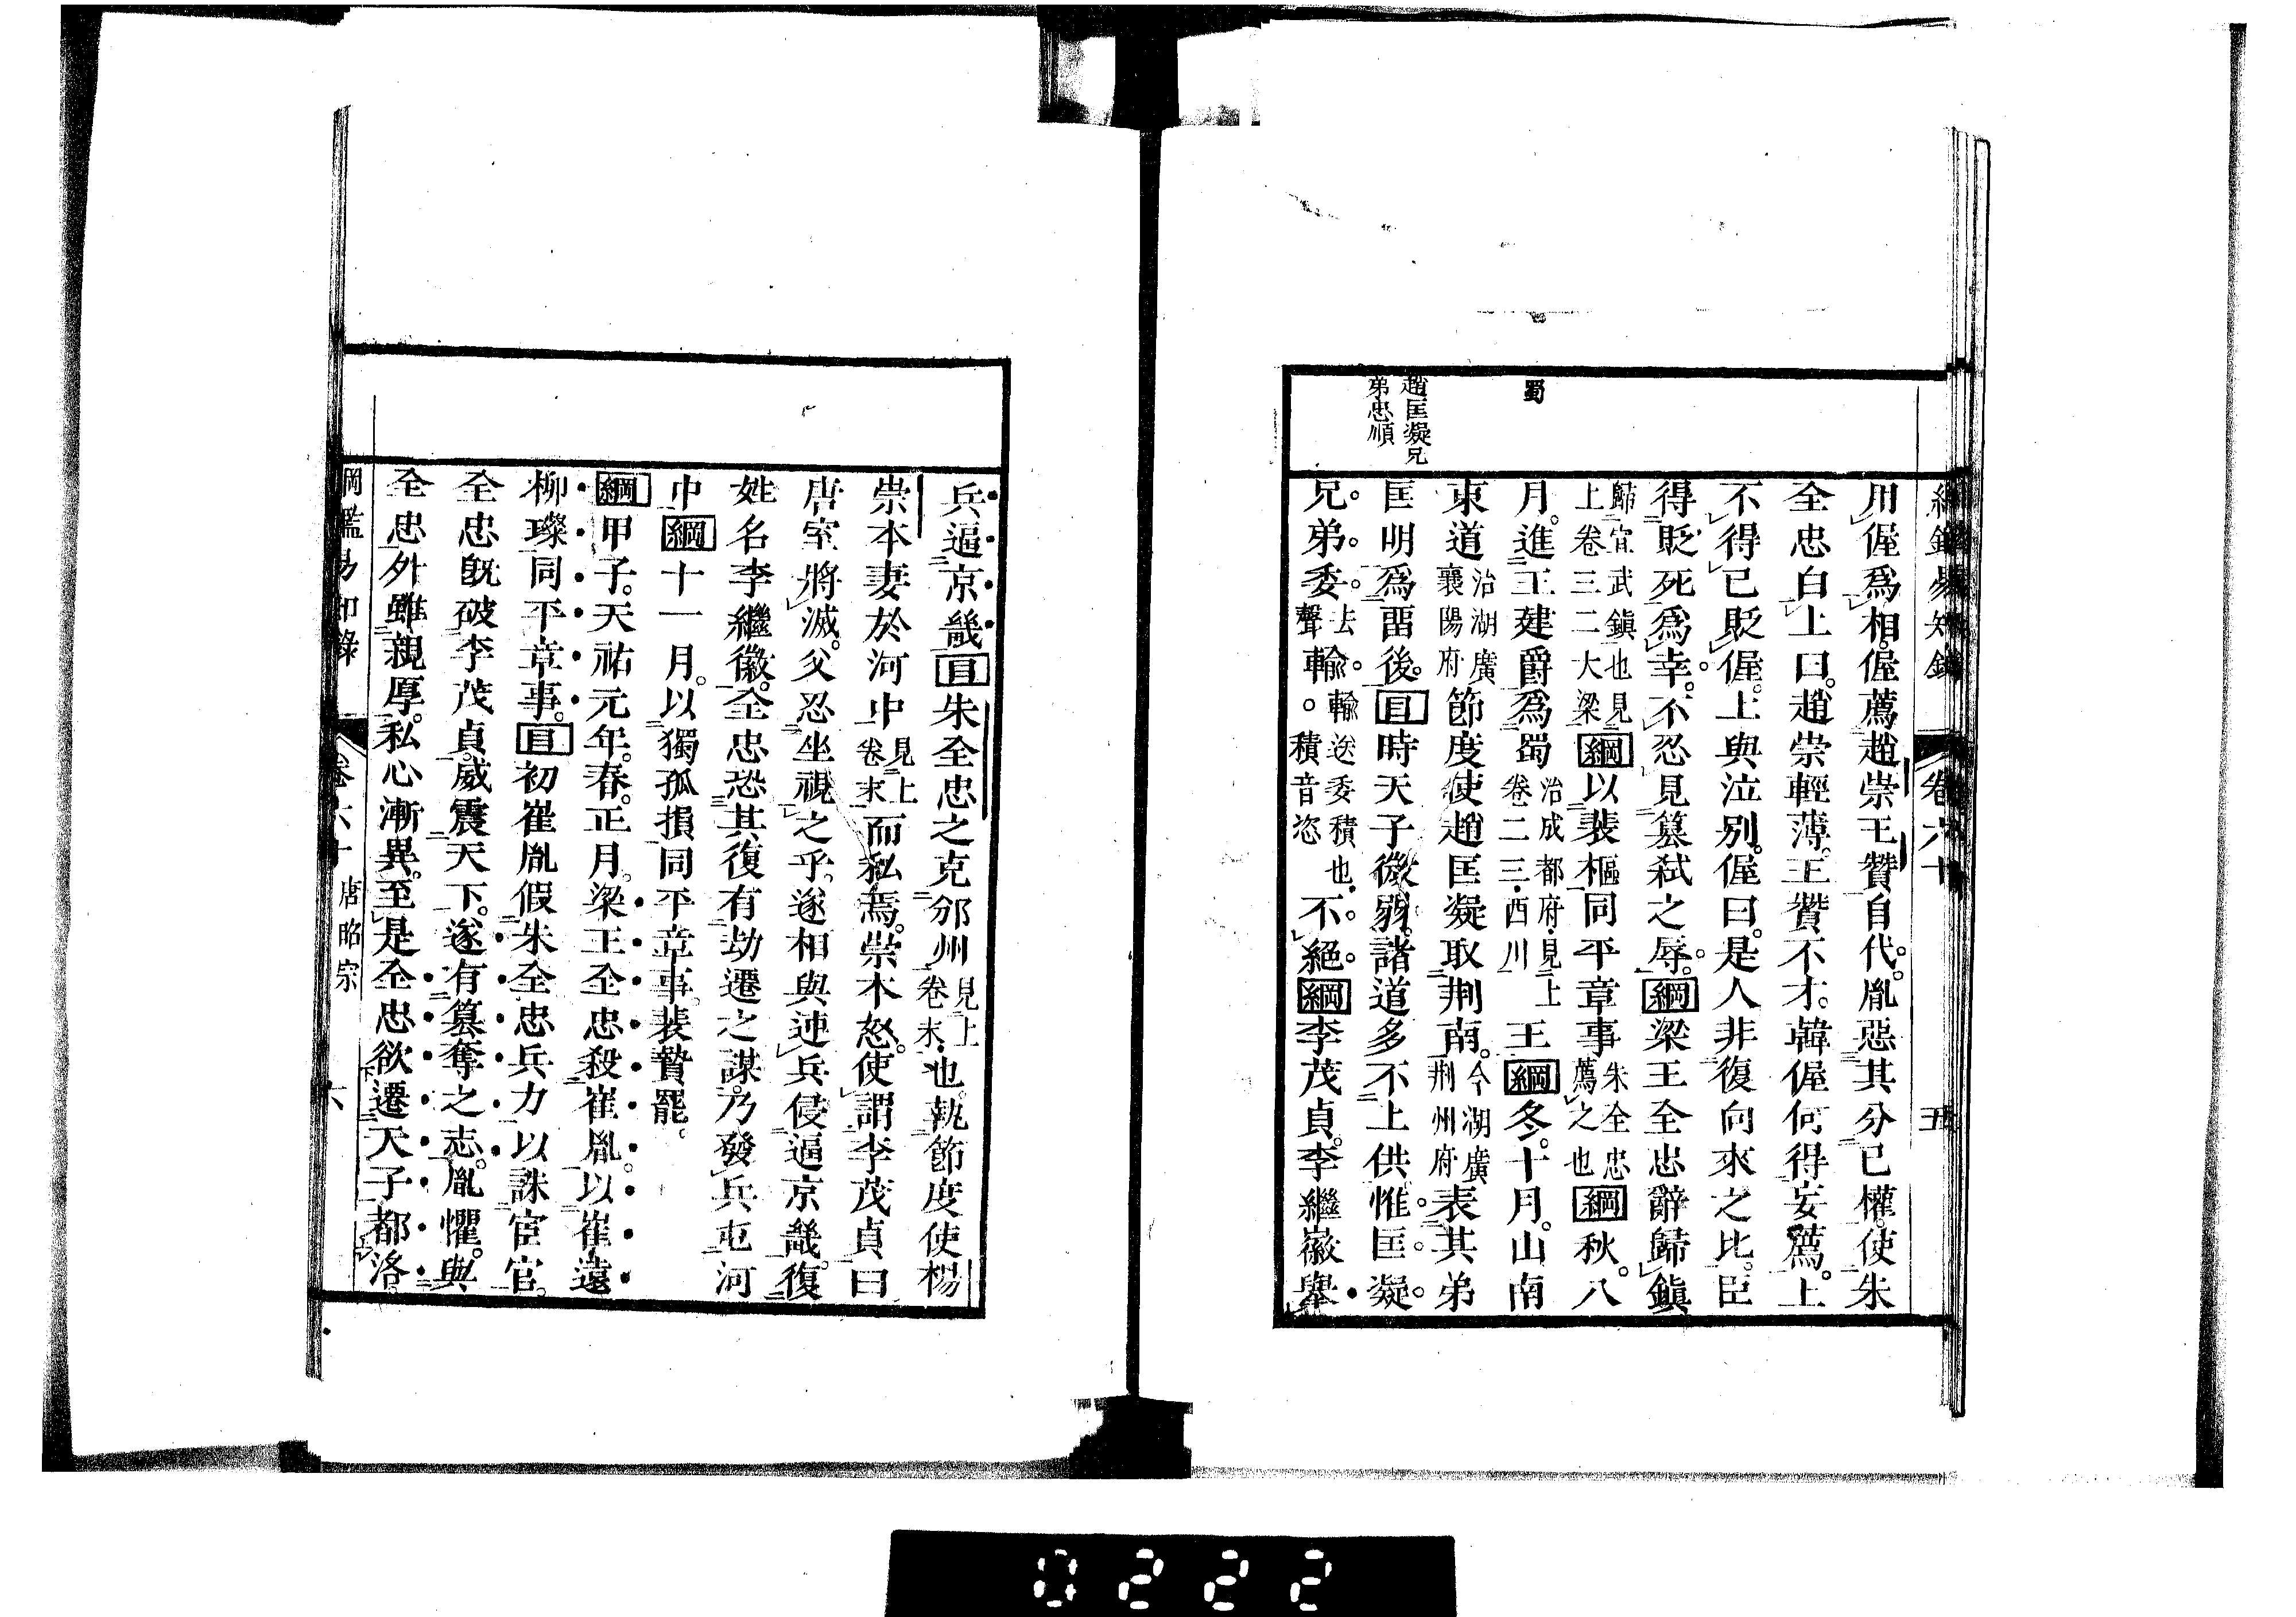 綱鑑易知錄 卷六十 五
用偓爲相。偓薦趙崇王贊自代。胤惡其分己權。使朱
全忠白上曰。趙崇輕薄。王贊不才。韓偓何得妄薦。上
不得已貶偓。上與泣別。偓曰。是人非復向來之比。臣
得貶死爲幸。不忍見篡弒之辱。綱梁王全忠辭歸鎮
歸宣武鎮也見
上卷三二大梁
綱以裴樞同平章事
朱全忠
薦之也
綱秋。八
月。進王建爵爲蜀
治成都府。見上
卷二三西川
王綱冬。十月。山南
東道
治湖廣
襄陽府
節度使趙匡凝取荆南。
今湖廣
荆州府
表其弟
匡明爲畱後。目時天子微弱。諸道多不上供。惟匡凝
兄弟委
去
聲
輸
輸送委積也。
輸。積音恣
不絕。綱李茂貞。李繼徽舉
蜀
趙匡凝兄
弟忠順
兵逼京畿目朱全忠之克邠州
見上
卷末
也。執節度使楊
崇本妻於河中
見上
卷末
而私焉。崇本怒。使謂李茂貞曰
唐室將滅。父忍坐視之乎。遂相與連兵侵逼京畿。復
姓名李繼徽。全忠恐其復有劫遷之謀。乃發兵屯河
中綱十一月。以獨孤損同平章事。裴贄罷。
綱甲子。天祐元年。春。正月。梁王全忠殺崔胤。以崔遠
柳璨同平章事。目初崔胤假朱全忠兵力以誅宦官。
全忠旣破李茂貞。威震天下。遂有篡奪之志。胤懼。與
全忠外雖親厚。私心漸異。至是全忠欲遷天子都洛。
綱鑑易知錄 卷六十 唐昭宗 六
0222